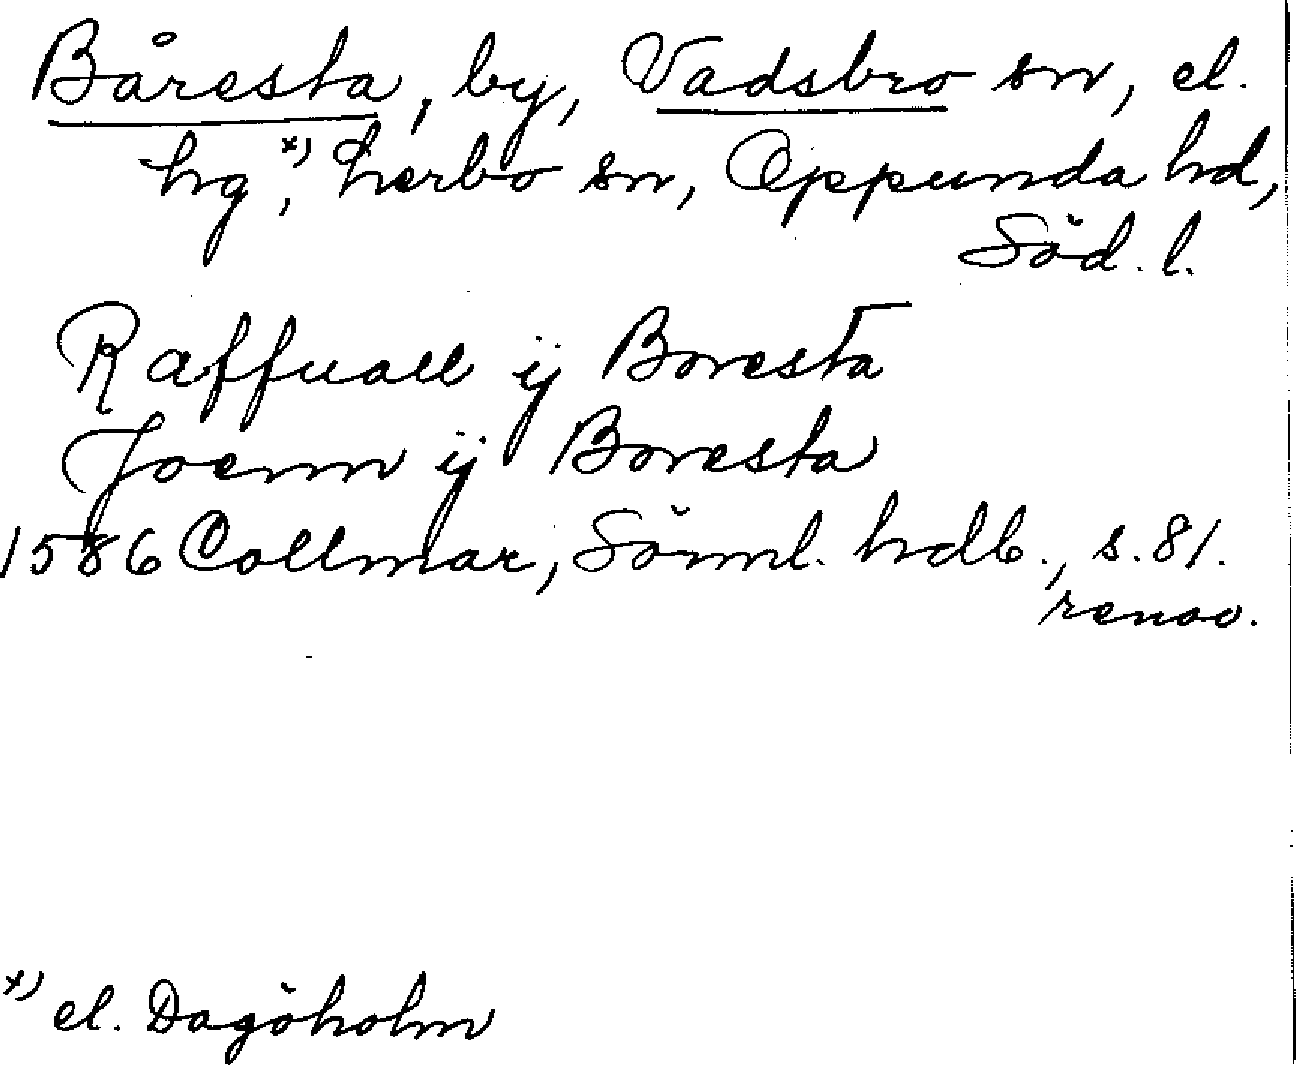 Båresta, by, Vadsbro sn, el.
hg,ˣ⁾ herbo sn, Oppunda hd,
Söd. l.
Raffuall ij Boresta
Joenn ij Boresta
1586 Collmar, Sörml. hdl 6., s. 81.
renov.
ˣ⁾ el. Dagöholm